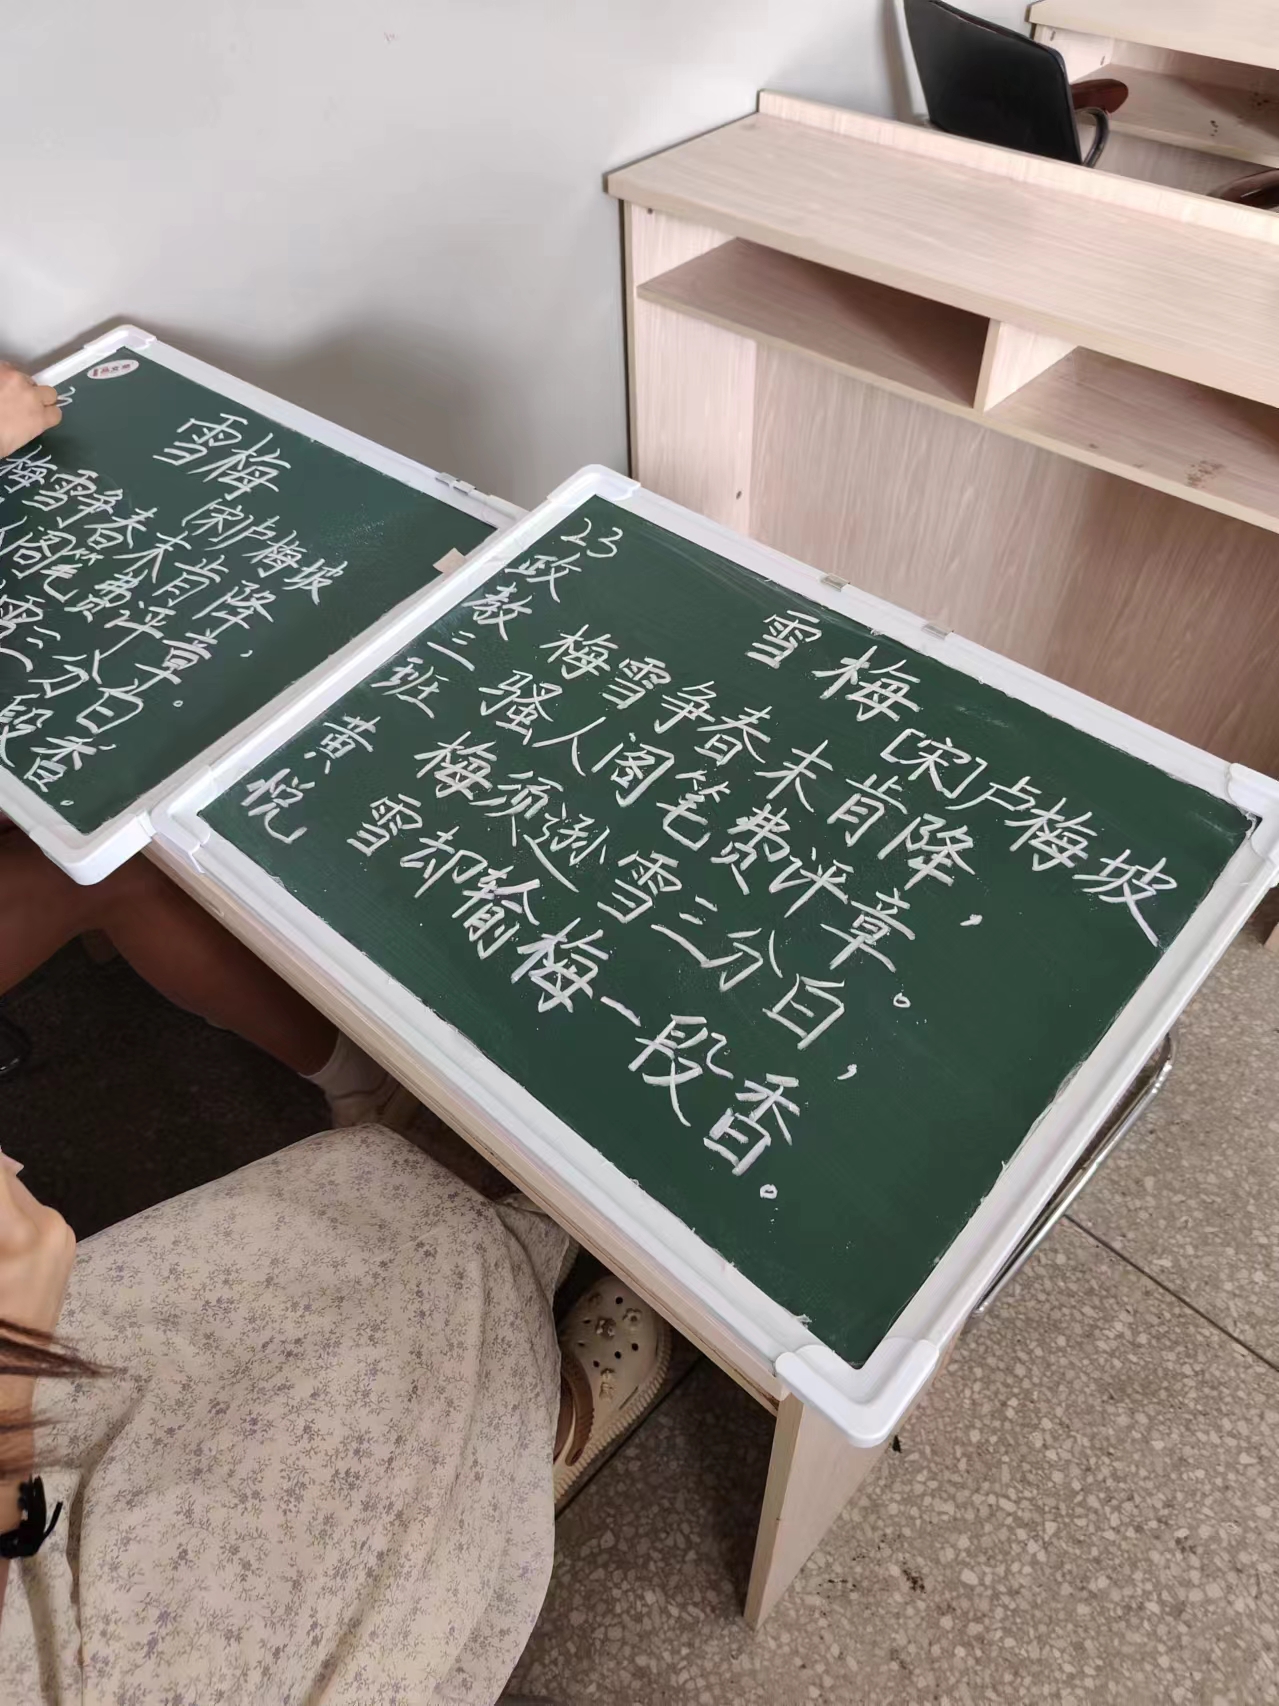 雪梅
[宋]卢梅坡
梅雪争春未肯降，
人阁笔费评章。
雪三分白
段香。
23政教三班 黄悦
雪梅
[宋]卢梅坡
梅雪争春未肯降，
骚人阁笔费评章。
梅须逊雪三分白，
雪却输梅一段香。